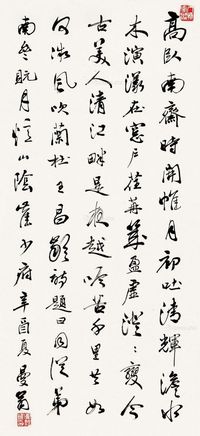 高臥南齋時開帷月初吐清輝澹水
木演漾在窓戶荏苒幾盈虛澄〻變今
古美人清江畔是夜越吟苦千里共如
何微風吹蘭杜王昌齡詩題曰同從弟
南齋翫月憶山陰崔少府辛酉夏曼翁